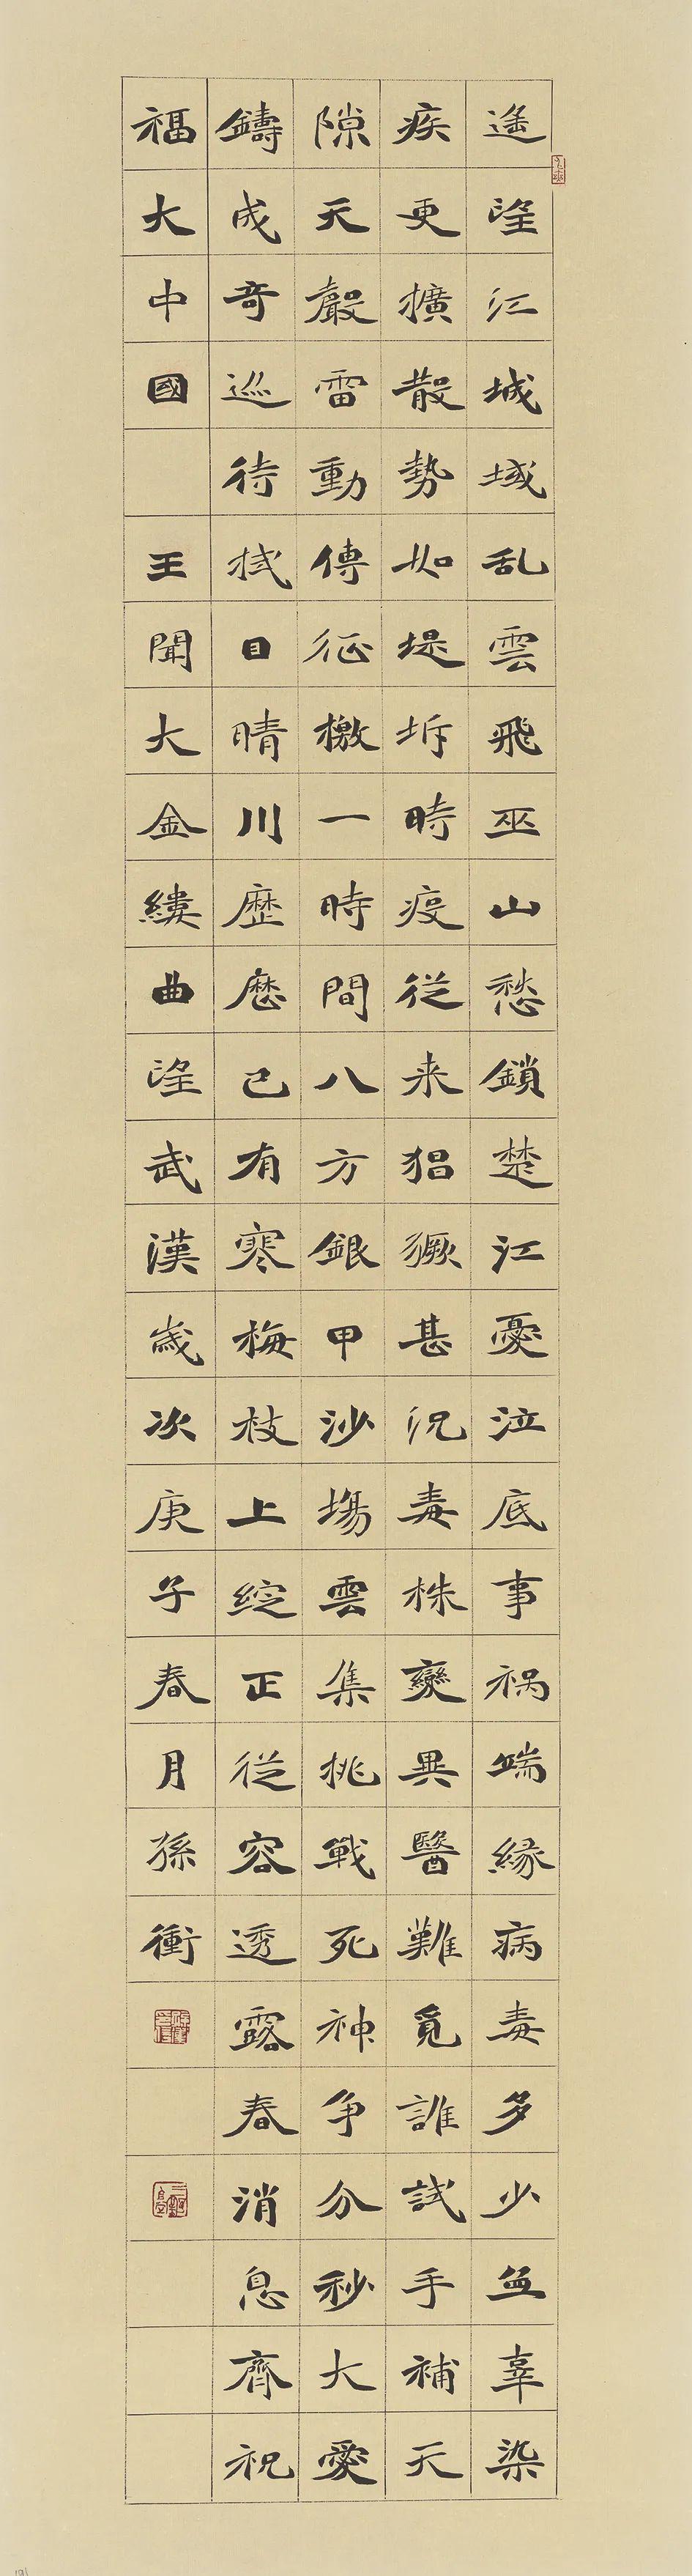 遥望江城域乱雲飛巫山愁鎖楚江憂泣底事禍端緣病毒多少無辜染
疾更擴散勢如堤坼時疫從来猖獗甚況毒株變異醫難覓誰試手補天
隙天嚴雷動傳征檄一時間八方銀甲沙場雲集挑戰死神争分秒大愛
鑄成奇巡待拭目晴川歷歷已有寒梅枝上綻正從容透露春消息齊祝
福大中國 王聞大金縷曲望武漢歲次庚子春月孫衝